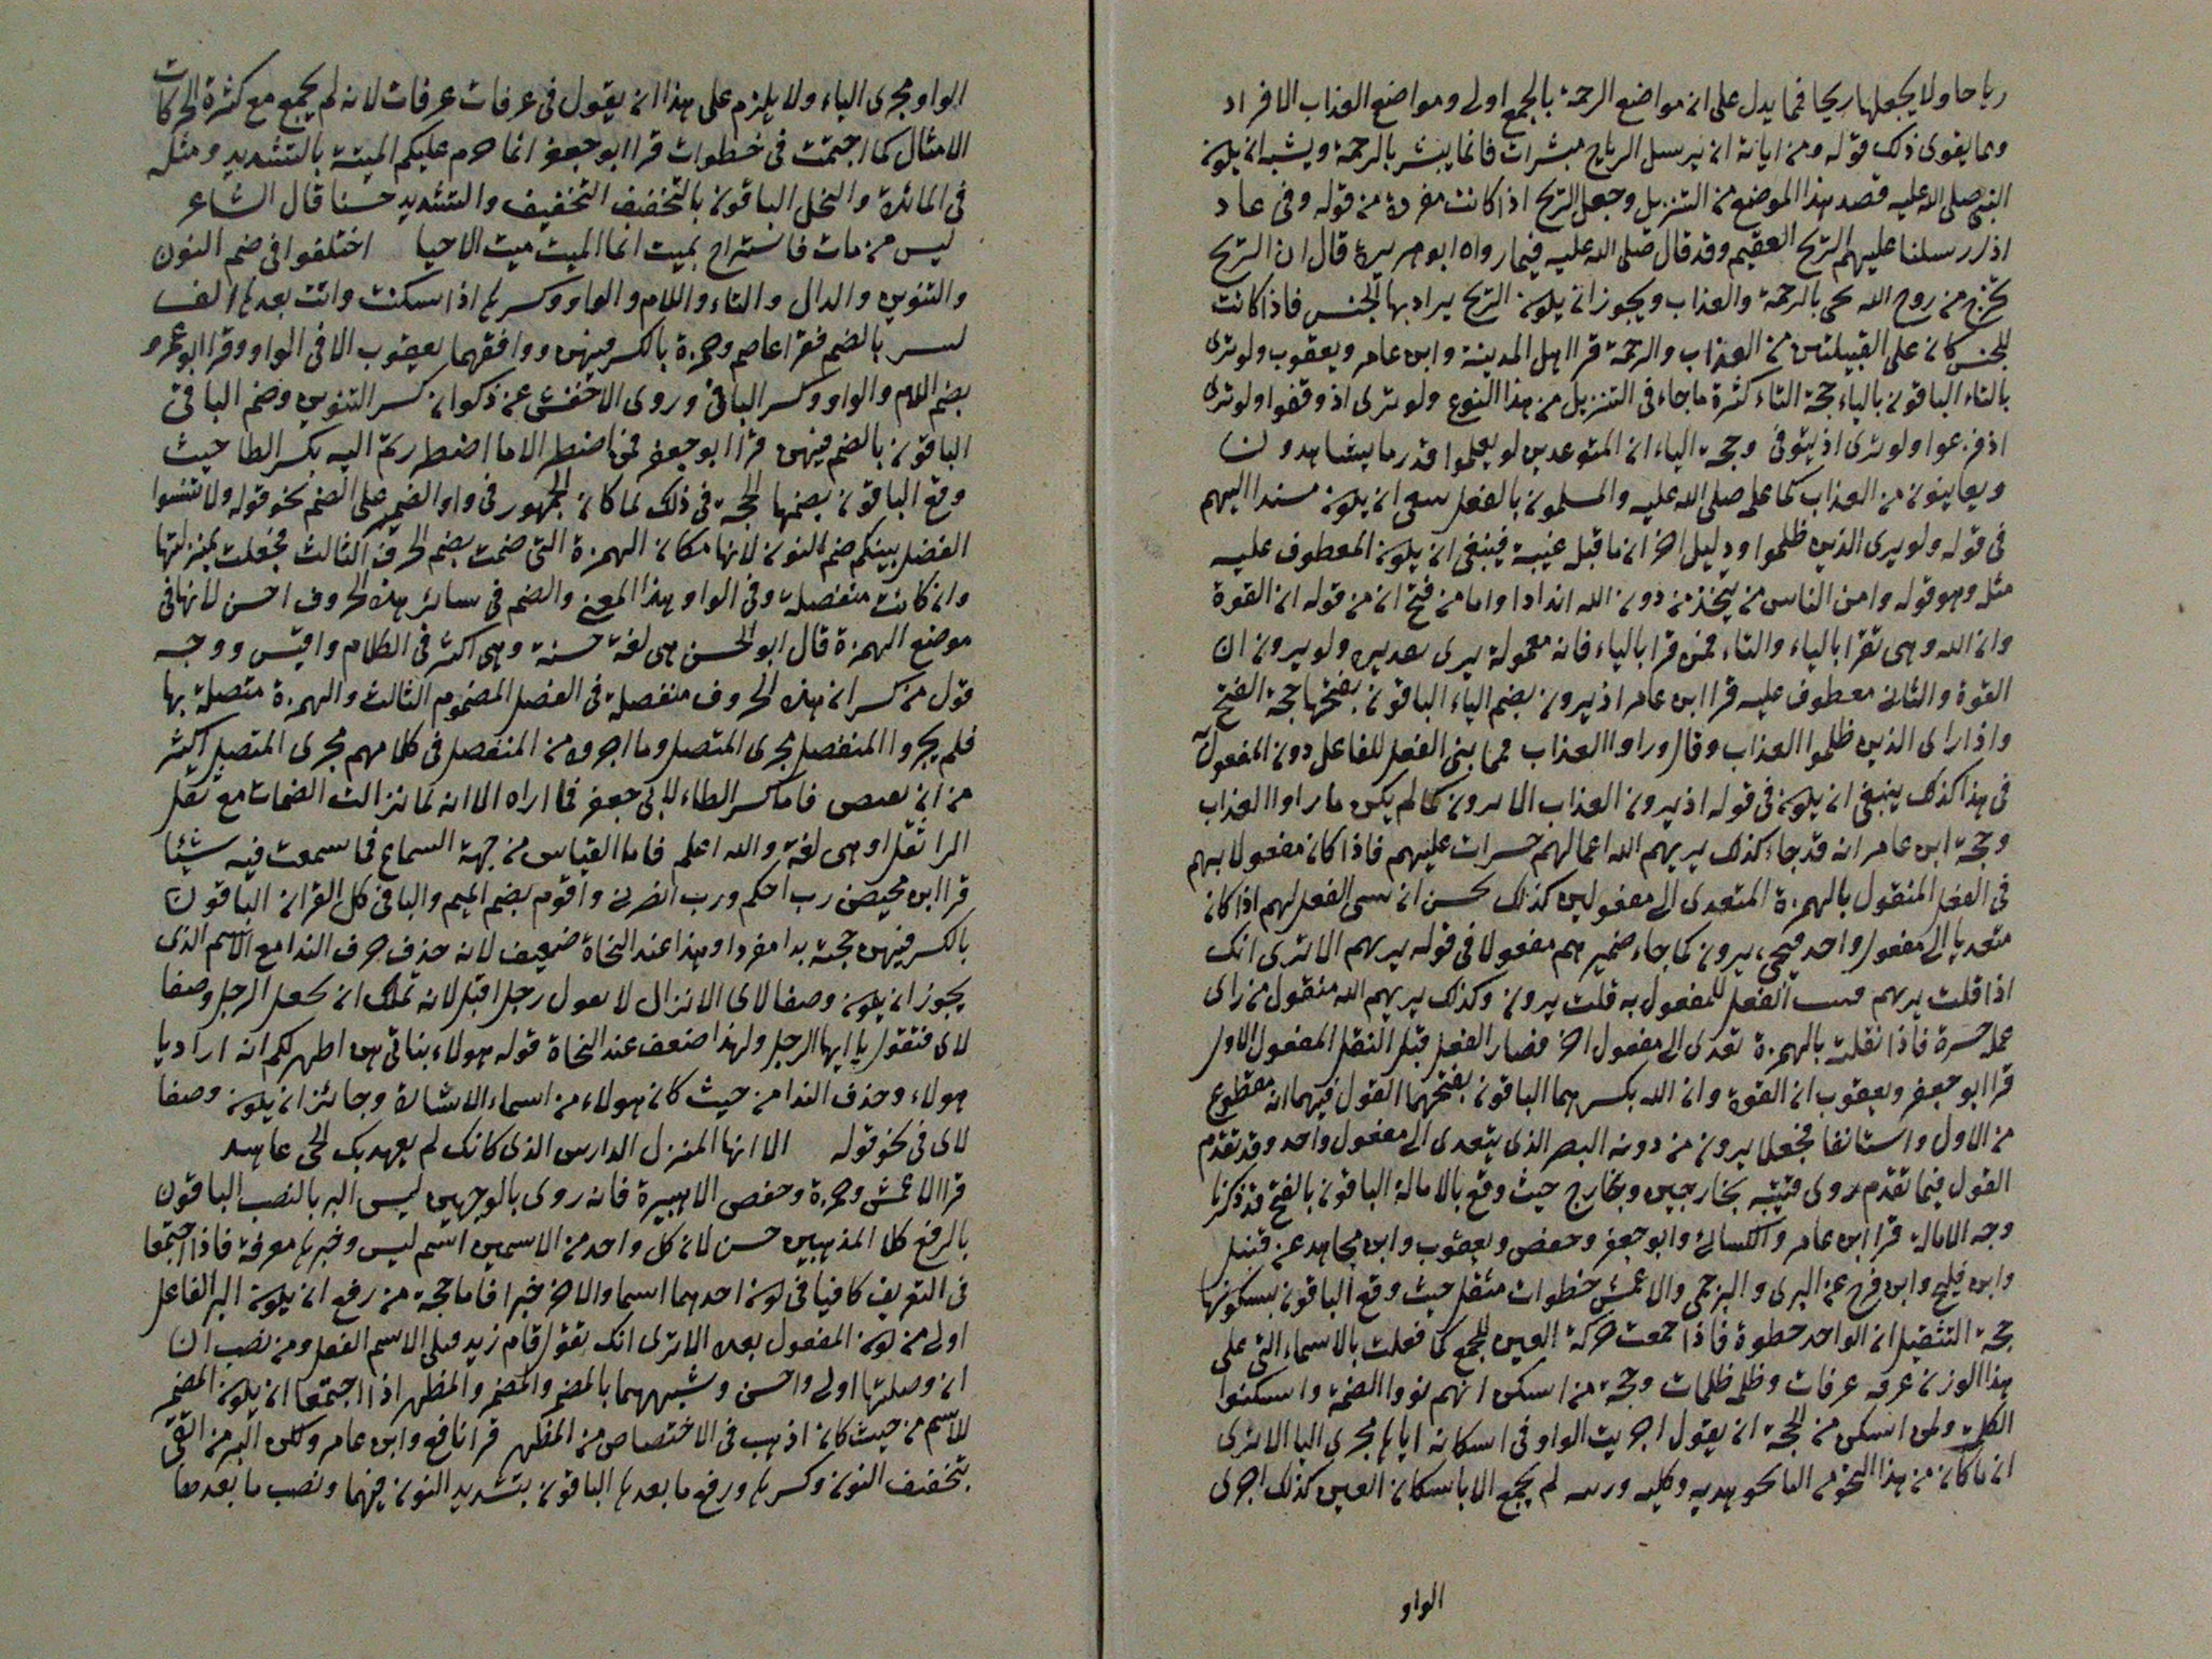 رياحا ولا يجعلها ريحا فمما يدل على ان مواضع الرحمة بالجمع اولى ومواضع العذاب الافراد
ومما يقوى ذلك قوله ومن اياته ان يرسل الرياح مبشرات فانما يبشر بالرحمة ويشبه ان يكون
النبى صلى الله عليه قصد هذا الموضع من التنزيل وجعل الريح اذا كانت مفردة من قوله وفى عاد
اذا ارسلنا عليهم الريح العقيم وقد قال صلى الله عليه فيما رواه ابو هريرة قال ان الريح
تخرج من روح الله تجى بالرحمة والعذاب ويجوز ان يكون الريح يراد بها الجنس فاذا كانت
للجنس كان على القبيلتين من العذاب والرحمة قرا اهل المدينة وابن عامر ويعقوب ولو ترى
بالتاء الباقون بالياء حجة التاء كثرة ما جاء فى التنزيل من هذا النوع ولو ترى اذ وقفوا ولو ترى
اذ فزعوا ولو ترى اذ يتوفى وحجة الياء ان المتوعدين لو يعلموا قدر ما يشاهدون
ويعاينون من العذاب كما علم صلى الله عليه والمسلمون بالفعل ان يكون مسندا اليهم
فى قوله ولو يرى الذين ظلموا ودليل اخر ان ما قبله غيبة فينبغى ان يكون المعطوف عليه
مثله وهو قوله وامن الناس من يتخذ من دون الله اندادا واما من فتح ان من قوله ان القوة
وان الله وهى تقرا بالياء والتاء فمن قرا بالياء فانه معمولة يرى ولو يرون ان
القوة والثانى معطوف عليه قرا ابن عامر اذ يرون بضم الياء الباقون بفتحها حجة الفتح
واذا راى الذين ظلموا العذاب وقال وراوا العذاب فما بنى الفعل للفاعل دون المفعول
فى هذا كذلك ينبغى ان يكون فى قوله اذ يرون العذاب كما لم يكن ما راوا العذاب
وحجة ابن عامر انه قد جاء كذلك يريهم الله اعمالهم حسرات عليهم فاذا كان مفعولا بهم
فى الفعل المنقول بالهمزة المتعدى الى مفعولين كذلك يحسن ان الفعل لهم اذا كان
متعديا الى مفعول واحد فيجى يرون كما جاء ضمير هم مفعولا فى قوله يريهم الا ترى انك
اذا قلت يريهم الفعل للمفعول به قلت يرون وكذلك يريهم الله منقول من راى
عمله حسرة فاذا نقلت بالهمزة تعدى الى مفعول اخر فصار الفعل قبل النقل المفعول الاول
قرا ابو جعفر ويعقوب ان القوة وان الله بكسرهما الباقون بفتحهما القول فيهما انه مقطوع
من الاول واستانفا فجعلا يرون من دونه البصر الذى يتعدى الى مفعول واحد وقد تقدم
القول فيما تقدم روى قتيبه بخارجين وبخارج حيث وقع بالامالة الباقون بالفتح قد ذكرنا
وجه الامالة قرا ابن عامر والكسائى وابو جعفر وحفص ويعقوب وابن مجاهد عن قنبل
وابن فليح وابن فرح عن البزى والبرجمى والاعمش خطوات مثقل حيث وقع الباقون بسكونها
حجة التثقيل ان الواحد خطوة فاذا جمعت حركة العين للجمع كما فعلت بالاسماء التى على
هذا الوزن غرفة غرفات وظلمة ظلمات وحجة من اسكن انهم نووا الضمة واسكنوا
الكلمة ولمن اسكن من الحجة ان يقول اجريت الواو فى اسكانه اياها مجرى اليا الا ترى
ان ما كان من هذا النحو من اليا نحو مدية وكلية لم يجمع الا باسكان العين كذلك اجرى
الواو
الواو مجرى الياء ولا يلزم على هذا ان يقول فى غرفات غرفات لانه لم يجمع مع كثرة الحركات
الامثال كما اجتمعت فى خطوات قرا ابو جعفر انما حرم عليكم الميتة بالتشديد ومثله
فى المائدة والنحل الباقون بالتخفيف التخفيف والتشديد حسنا قال الشاعر
ليس من مات فاستراح بميت انما الميت ميت الاحيا اختلفوا فى ضم النون
والتنوين والدال والتاء واللام والواو وكسرها اذا سكنت واتت بعدها الف
بالضم فقرا عاصم وحمزة بالكسر فيهن ووافقهما يعقوب الا فى الواو وقرا ابو عمرو
بضم اللام والواو وكسر الباقى وروى الاخفش عن ذكوان كسر التنوين وضم الباقى
الباقون بالضم فيهن قرا ابو جعفر فمن اضطر الا ما اضطررتم اليه بكسر الطا حيث
وقع الباقون بضمها الحجة فى ذلك لما كان الجمهور فى واو الضمير على الضم نحو قوله ولا تنسوا
الفضل بينكم ضم النون لانها مكان الهمزة التى ضمت بضم الحرف الثالث فجعلت بمنزلتها
وان كانت منفصلة وفى الواو هذا المعنى والضم فى سائر هذه الحروف احسن لانها فى
موضع الهمزة قال ابو الحسن هى لغة حسنة وهى اكثر فى الكلام واقيس ووجه
قول من كسر ان هذه الحروف منفصلة فى الفصل المضموم الثالث والهمزة متصلة بها
فلم يجروا المنفصل مجرى المتصل وما اجروه من المنفصل فى كلامهم مجرى المتصل اكثر
من ان فاما كسر الطاء لابى جعفر فما اراه الا انه لما نزالت الضمات مع ثقل
الرا ثقل او هى لغة والله اعلم فاما القياس من جهة السماع فما سمعت فيه شيئا
قرا ابن محيصن رب احكم ورب انصرنى واقوم بضم الميم والبا فى كل القران الباقون
بالكسر فيهن حجة بدا مفردا وهذا عند النحاة ضعيف لانه حذف حرف الندا مع الاسم الذى
يجوز ان يكون وصفا لاى الا نزال لا يقول رجل اقبل لانه تملك ان تجعل الرجل وصفا
لاى فتقول يا ايها الرجل ولهذا ضعف عند النحاة قوله هولاء بناتى هن اطهر لكم انه اراد يا
هولاء وحذف الندا من حيث كان هولاء من اسماء الاشارة وجائز ان يكون وصفا
لاى فى نحو قوله الا ايها المنزل الدارس الذى كانك لم يعهد بك الحى عاهد
قرا الاعمش وحمزة وحفص الا هبيرة فانه روى بالوجهين ليس البر بالنصب الباقون
بالرفع كلا المذهبين حسن لان كل واحد من الاسمين اسم ليس وخبرها معرفة فاذا اجتمعا
فى التعريف كافيا فى كون احدهما اسما والاخر خبرا فاما حجة من رفع ان يكون البر الفاعل
اولى من كون المفعول بعده الا ترى انك تقول قام زيد فيلى الاسم الفعل ومن نصب ان
ان وصلتها اولى واحسن وشبههما بالمضمر والمضمر والمظهر اذا اجتمعا ان يكون المضمر
للاسم من حيث كان اذهب فى الاختصاص من المظهر قرا نافع وابن عامر ولكن البر من اتقى
بتخفيف النون وكسرها ورفع ما بعدها الباقون بتشديد النون فيهما ونصب ما بعدها